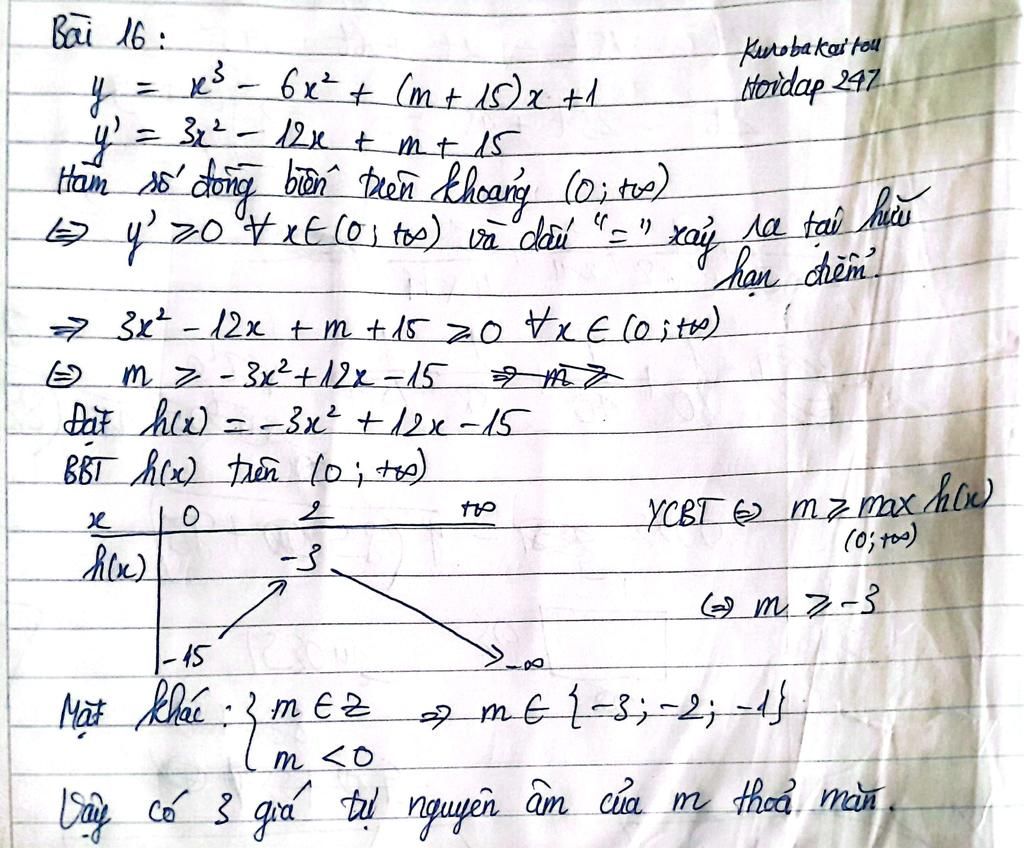 Bài 16:
Kurobakaitou
Hoidap 247
y = x³ - 6x² + (m + 15)x + 1
y' = 3x² - 12x + m + 15
Hàm số đồng biến trên khoảng (0; +∞)
⇔ y' ≥ 0 ∀ x ∈ (0; +∞) và dấu "=" xảy ra tại hữu
hạn điểm.
⇒ 3x² - 12x + m + 15 ≥ 0 ∀x ∈ (0; +∞)
⇔ m ≥ -3x² + 12x - 15 ⇒ m ≥
Đặt h(x) = -3x² + 12x - 15
BBT h(x) trên (0; +∞)
x 0 2 +∞
h(x) -3
-15 -∞
YCBT ⇔ m ≥ max h(x)
(0; +∞)
⇔ m ≥ -3
Mặt khác: { m ∈ Z ⇒ m ∈ {-3; -2; -1}
m < 0
Vậy có 3 giá tự nguyên âm của m thoả mãn.